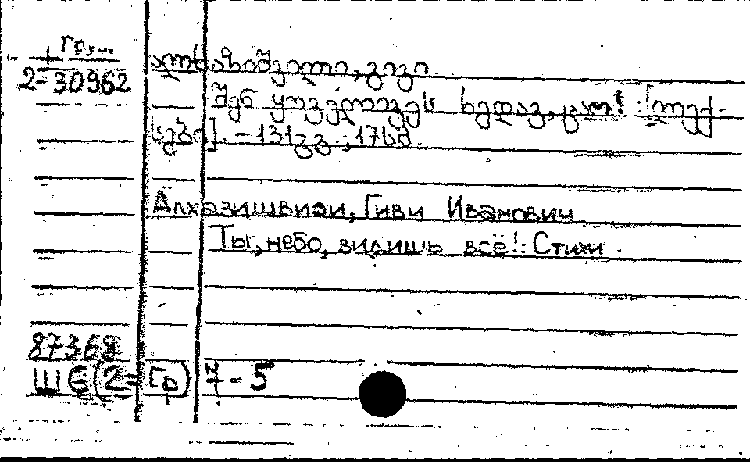 Груз.
2-30962
ალხაზიშვილი, გივი
შენ ყოველივეს ხედავ, ცაო! : [ლექ-
სები]. - 131გვ.; 17სმ.
Алхазишвили, Гиви Иванович
Ты, небо, видишь всё!: Стихи.
87368
Ш6(2=Гр)7-5